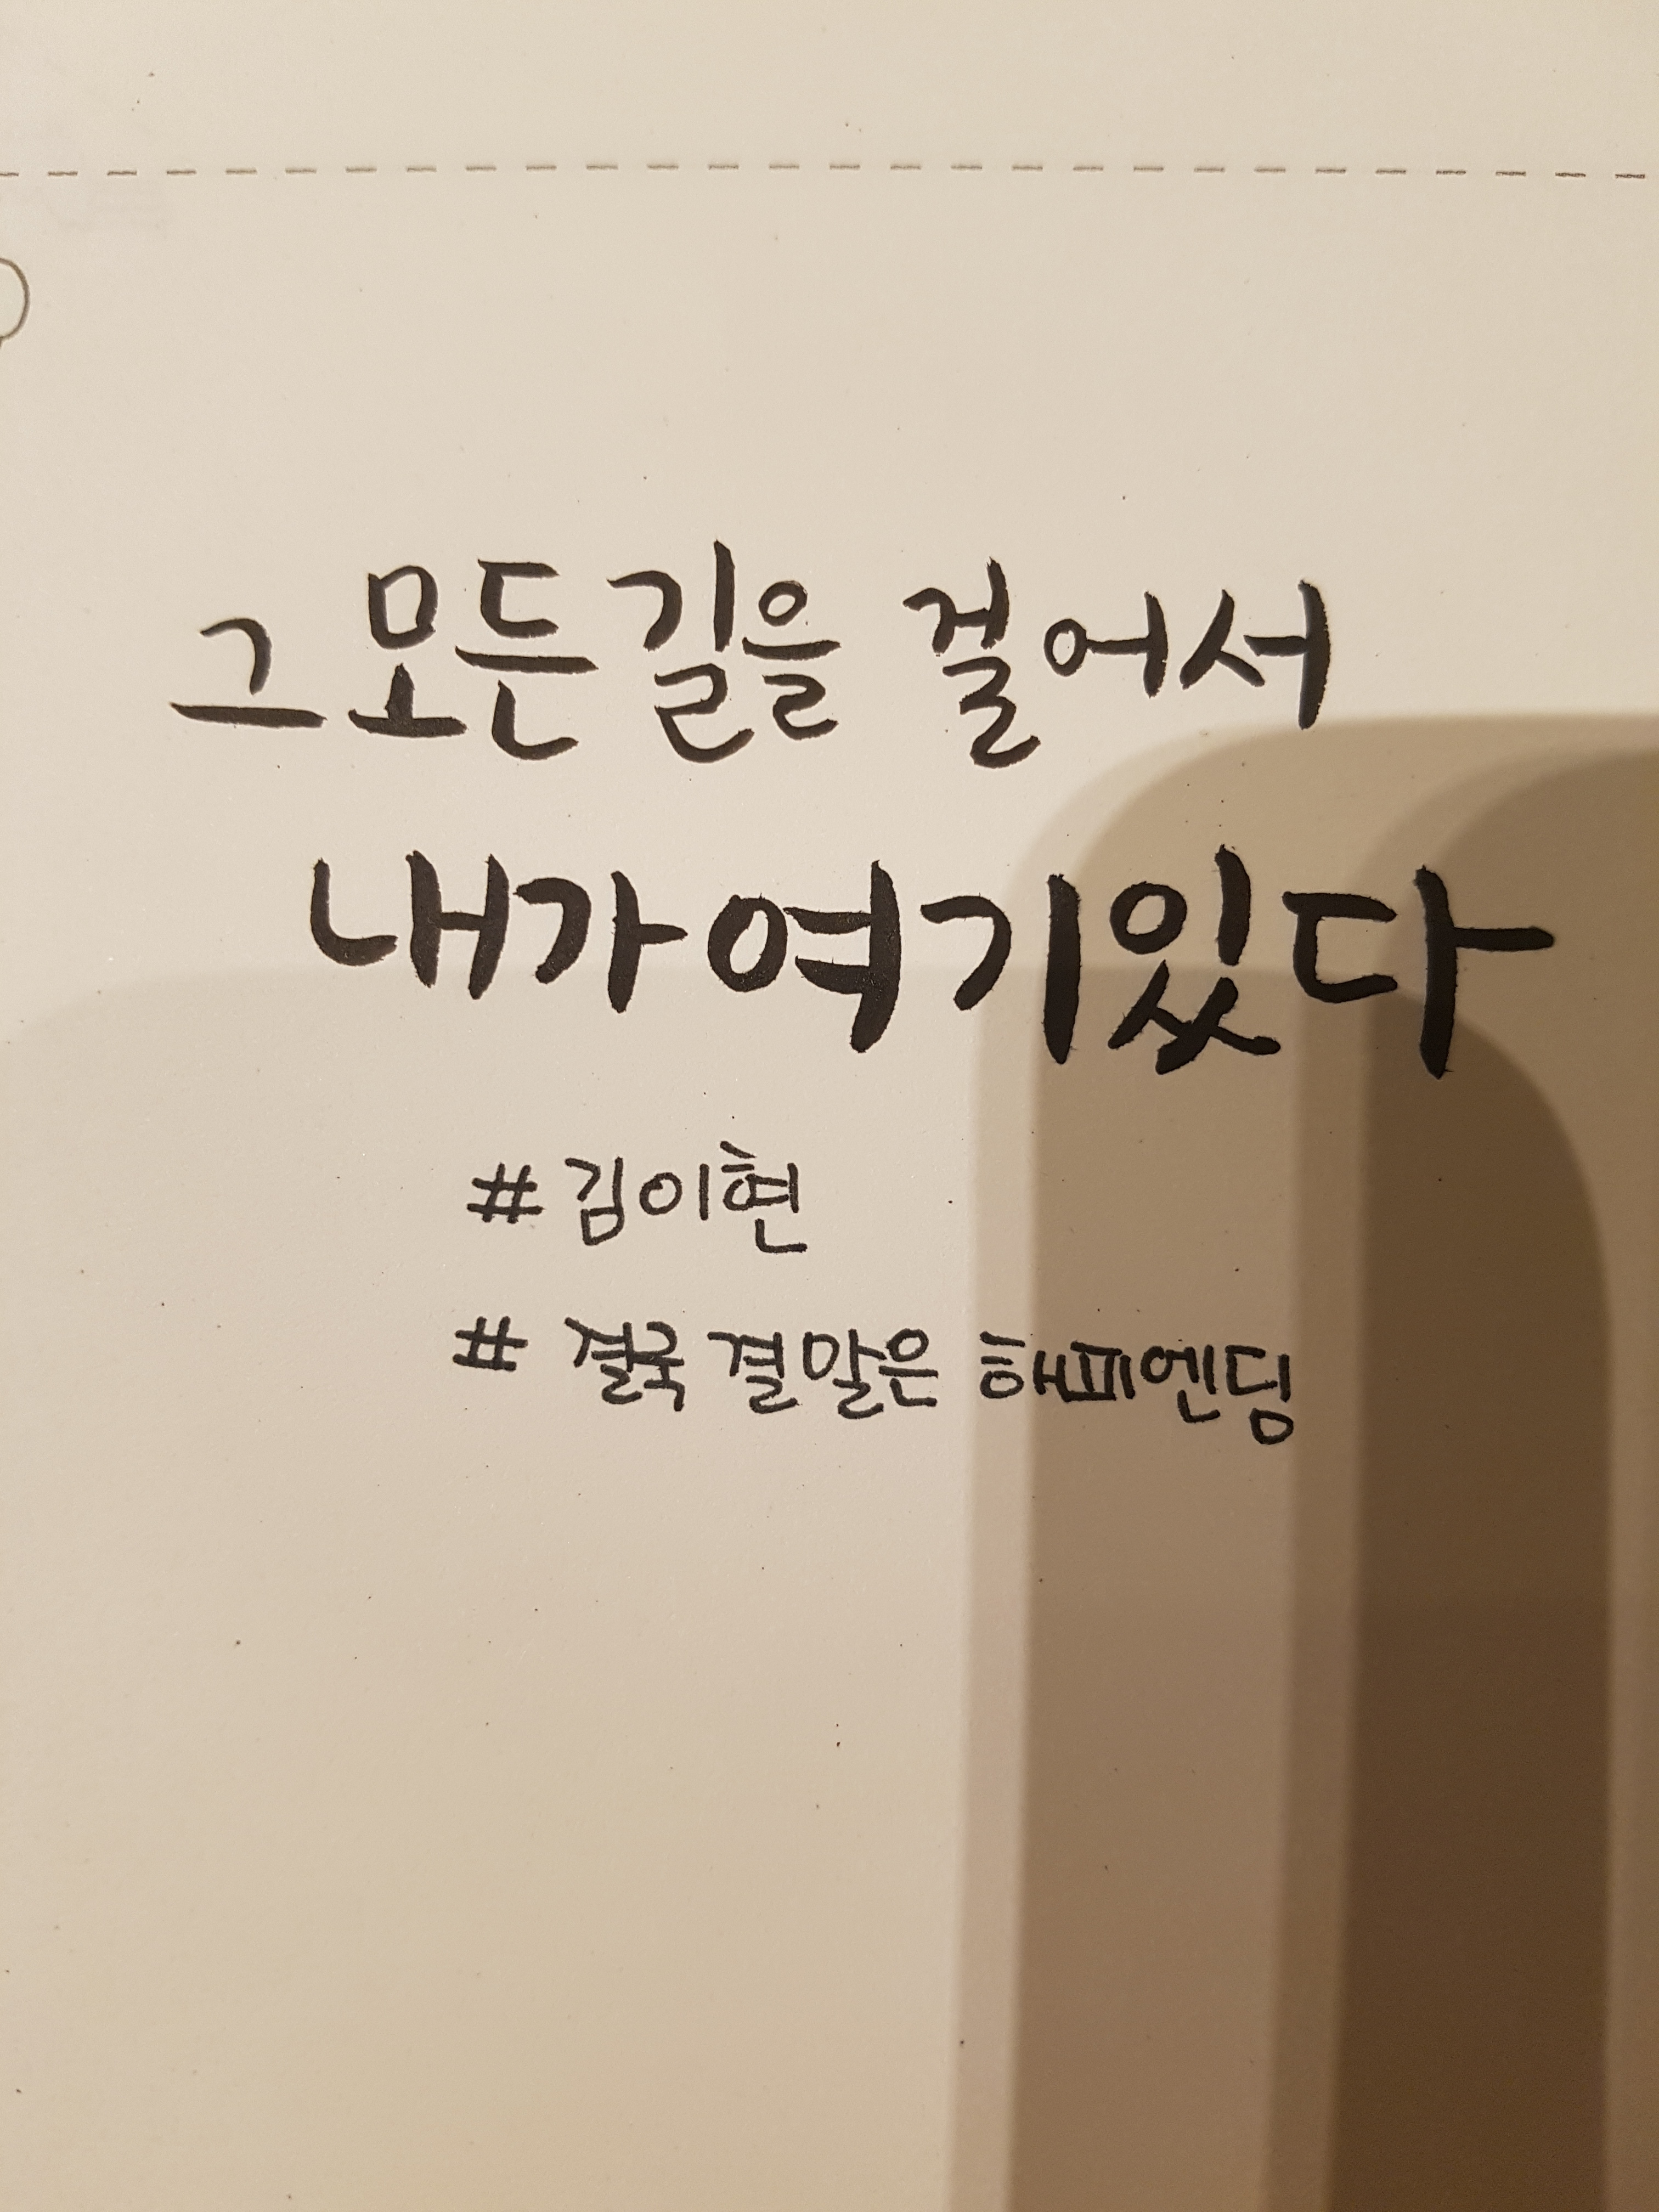 그 모든 길을 걸어서
내가 여기 있다
# 김이현
# 결국 결말은 해피엔딩